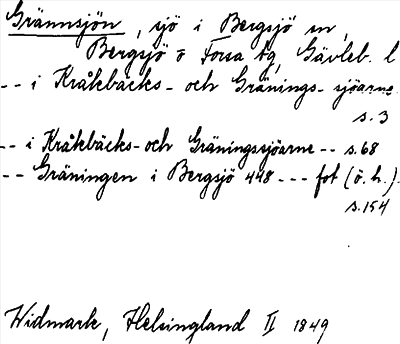 Grännsjön, sjö i Bergsjö sn,
Bergsjö o Forsa tg, Gävleb. l
-- i Kråkbäcks- och Gränings- sjöarne
s. 3
-- i Kråkbäcks- och Gräningssjöarne -- s. 68
-- Gräningen i Bergsjö 448 --- fot (ö. h.).
s. 154
Widmark, Helsingland II 1849